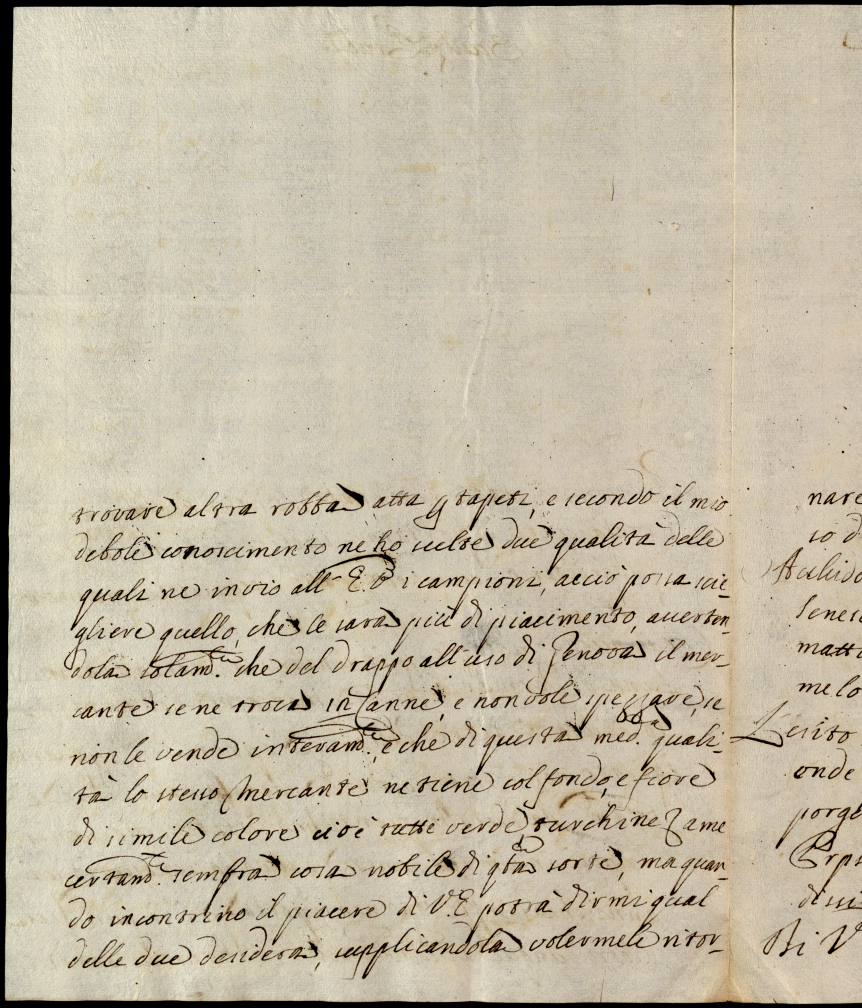 trovare altra robba atta p tapeti, e secondo il mio
debole conoscimento ne ho scelte due qualità delle
quali ne invio all' E.V. i campioni, acciò possa scie-
gliere quello, che le sarà più di piacimento, averten-
dola solamte. che del drappo all'uso di Genova il mer-
cante se ne trova canne, e non vole spezzare, se
non le vende interamte. e che di questa medma. quali-
tà lo stesso Mercante ne tiene col fondo, e fiore
di simile colore cioè tutte verdè turchine, ame
certamte. sembra cosa nobile di qta sorte, ma quan-
do incontrino il piacere di V.E potrà dirmi qual
delle due desidera, supplicandola volermele ritor-
nare
so d
me lo
L'esito
onde
porge
Di V